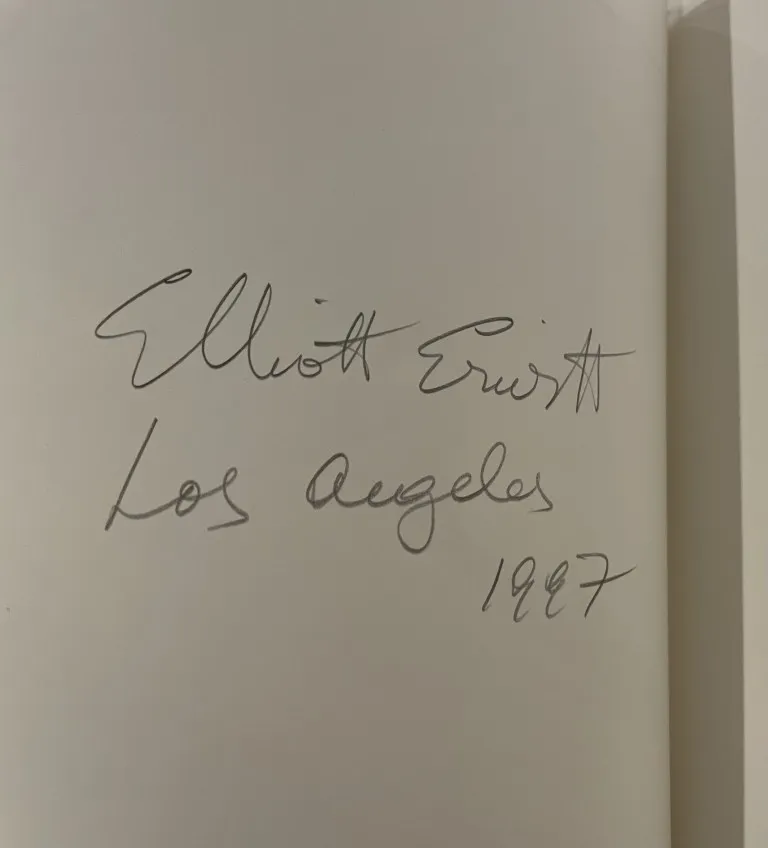 Elliott Erwitt
Los Angeles
1997